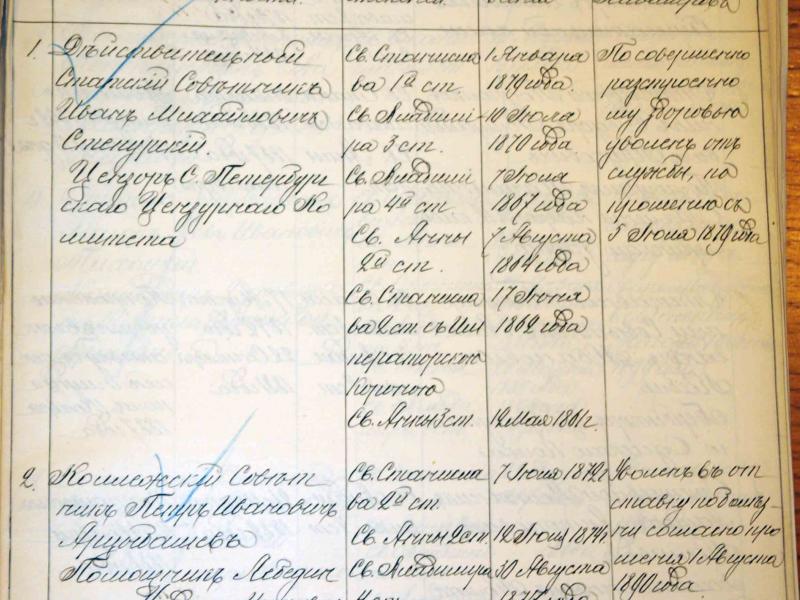 1. Дѣйствительный
Статскій Совѣтникъ
Иванъ Михайловичъ
Стенурскій.
Цензоръ С. Петербург
скаго Цензурнаго Ко
митета
Св. Станисла
ва 1й ст.
Св. Владими
ра 3 ст.
Св. Владими
ра 4й ст
Св. Анны
2й ст.
Св. Станисла
ва 2 ст. съ Им
ператорскою
Короною
Св. Анны 3 ст.
1 Января
1879 года.
10 Іюля
1870 года.
7 Іюля
1867 года
7 Августа
1864 года
17 Іюня
1862 года
12 Мая 1861 г.
По совершенно
разстроенно
му здоровью
уволенъ отъ
службы, по
прошенію съ
5 Іюля 1879 года
2. Коллежскій Совѣт
никъ Петръ Ивановичъ
Арцыбашевъ
Помощникъ
Св. Станисла
ва 2й ст.
Св. Анны 2 ст.
Св. Владимира
4 ст.
7 Іюня 1872 г
12 Іюня 1874 г.
30 Августа
Уволенъ въ от
ставку по болѣз
ни согласно про
шенія 1 Августа
1890 года.